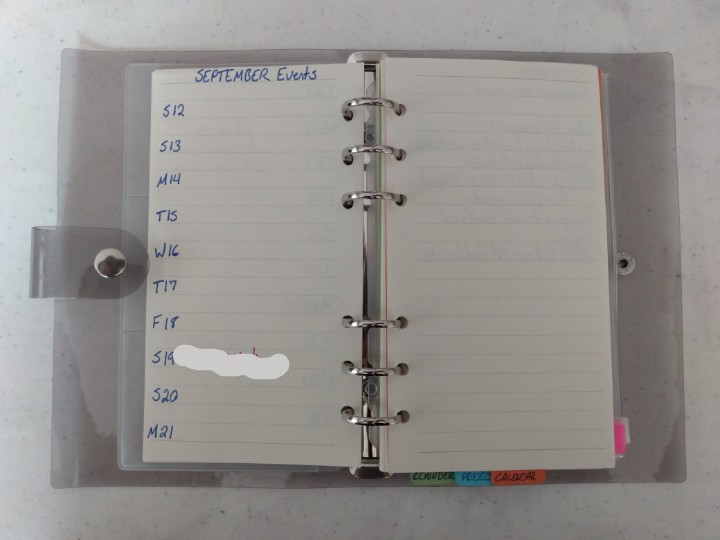 SEPTEMBER Events
S12
S13
M14
T15
W16
T17
F18
S19
S20
M21
REMINDER CALENDAR